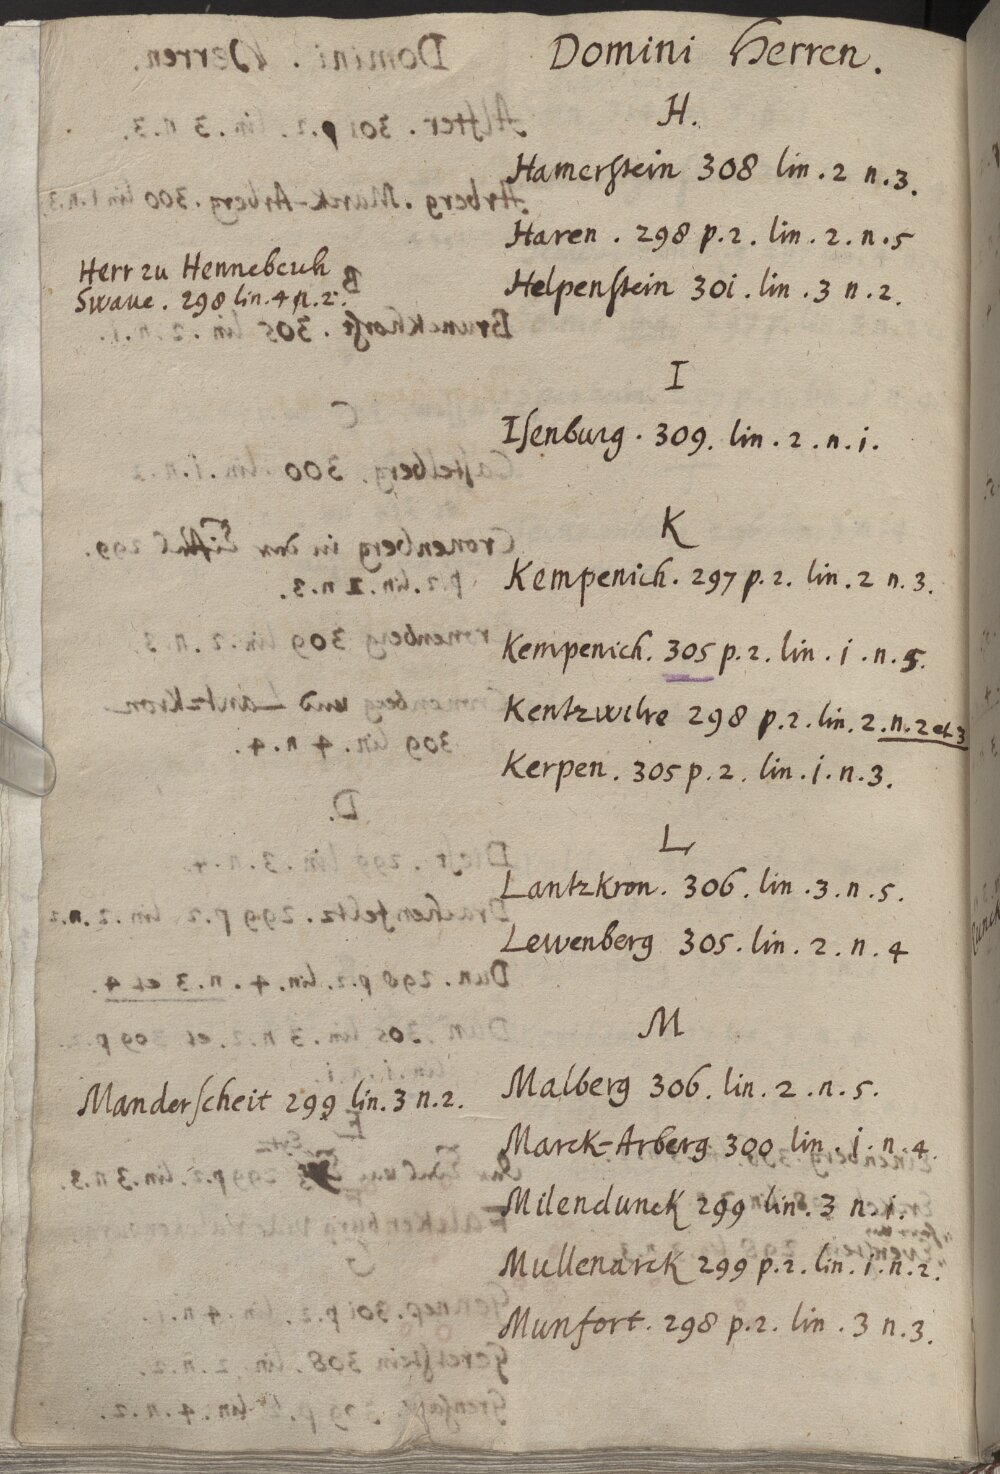 Domini Herren.
H.
Hamerstein 308 lin. 2 n. 3.
Haren. 298 p. 2. lin. 2. n. 5
Herr zu Henneberch
Swaue. 298 lin. 4 n. 2.
Helpenstein 301. lin. 3 n. 2.
I
Isenburg. 309. lin. 2. n. i.
K
Kempenich. 297 p. 2. lin. 2 n. 3.
Kempenich. 305 p. 2. lin. i. n. 5.
Kentzwilre 298 p. 2. lin. 2. n. 2 et 3
Kerpen. 305 p. 2. lin. i. n. 3.
L
Lantzkron. 306. lin. 3. n. 5.
Lewenberg 305. lin. 2. n. 4
M
Malberg 306. lin. 2. n. 5.
Manderscheit 299 lin. 3 n. 2.
Marck-Arberg 300 lin. i. n. 4.
Milendunck 299 lin. 3 n. i.
Mullenarck 299 p. 2. lin. i. n. 2.
Munfort. 298 p. 2. lin. 3 n. 3.